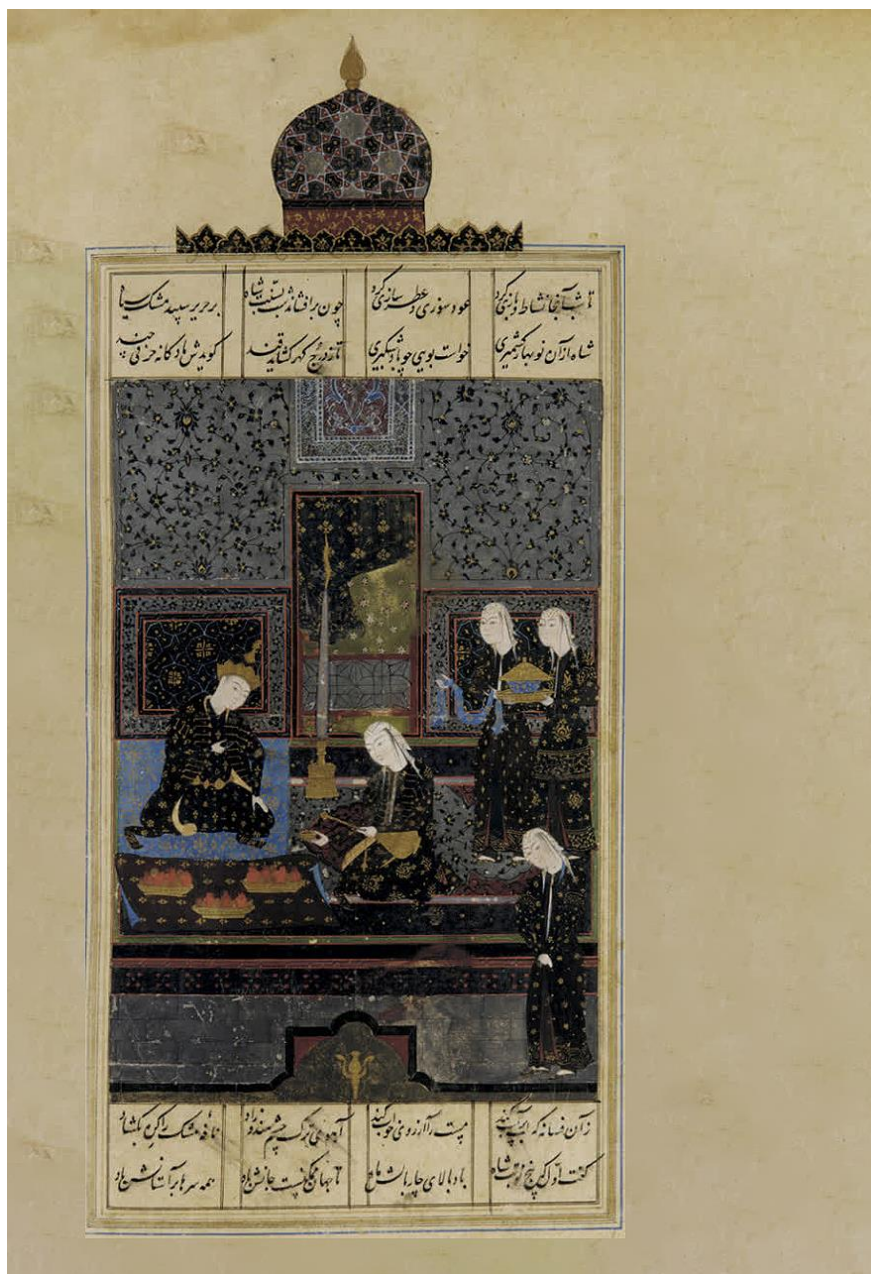 تا شب آنجا نشاط و بازی کرد عود سوزی و عطر سازی کرد چون برافشاند شب بسنت شاه بر حریر سپید مشک سیاه
شاه از آن نوبهار کشمیری خواست بویی چو باد شبگیری تا ز درج گهر گشاید قند گویدش مادگانه حرفی چند
زآن فسانه که لب پرآب کند مست را آرزوی خواب کند آهوی ترک چشم هندو زاد نافه مشک را گره بگشاد
گفت اول که پنج نوبت شاه باد بالای چار بالش ماه تا جهان ممکنست جانش باد همه سرها بر آستانش باد